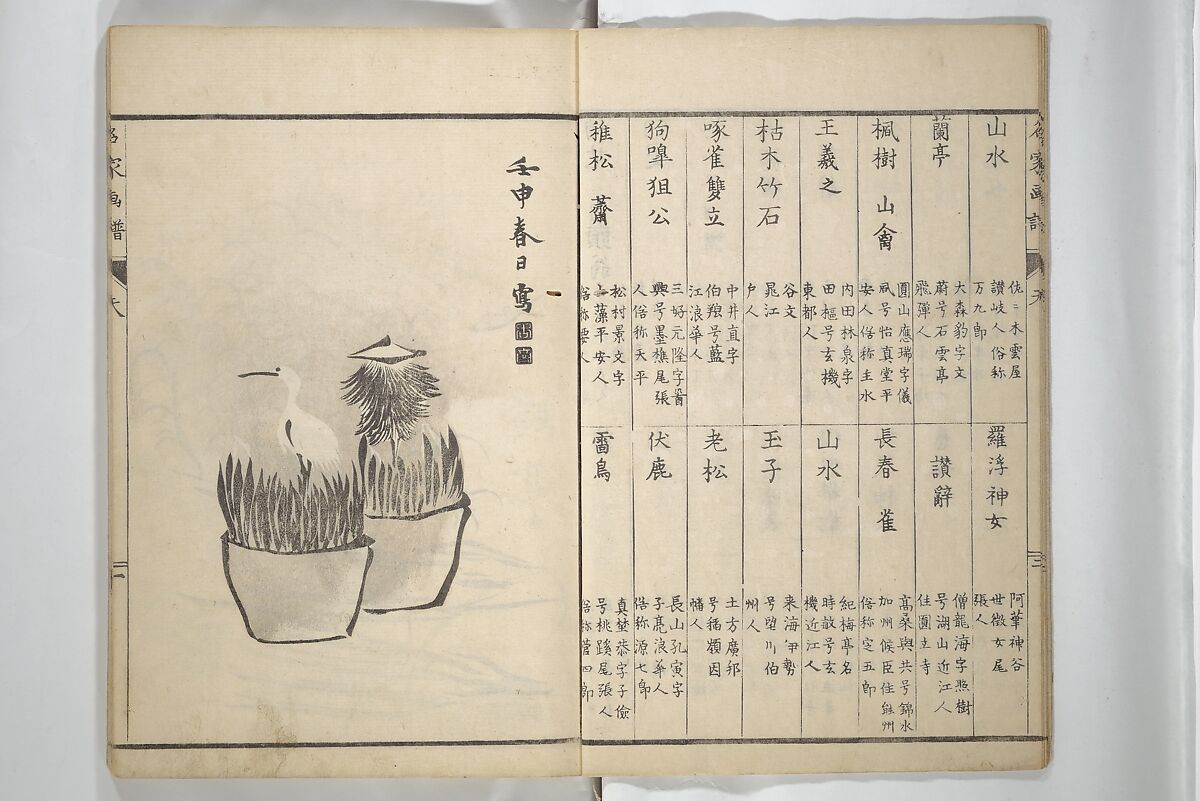 山水
佐々木雲屋
讃岐人俗称
万九郎
蘭亭
大森豹字文
蔚号石雲亭
飛弾人
楓樹 山禽
圓山應瑞字儀
鳳号怡真堂平
安人俗称主水
王羲之
内田林泉字
田樞号玄機
東都人
枯木竹石
谷文
晁江
戸人
啄雀雙立
中井直字
伯
号藍
江浪華人
狗嘷狙公
三好元隆字
興号墨樵尾張
人俗称天平
稚松 薺
松村景文字
士藻平安人
俗称要人
羅浮神女
阿華神谷
世微女尾
張人
讃辭
僧龍海字照樹
号湖山近江人
住圓立寺
長春 雀
高桑與共号錦水
加州候臣住能州
俗称定五郎
山水
紀梅亭名
時敏号玄
機近江人
玉子
来海伊勢
号堕川伯
州人
老松
土方廣邦
号稲嶺因
幡人
伏鹿
長山孔寅字
子亮浪華人
俗称源七郎
雷鳥
真埜恭字子儉
号桃蹊尾張人
俗称菅四郎
壬申春日寫
名家画譜
六
二